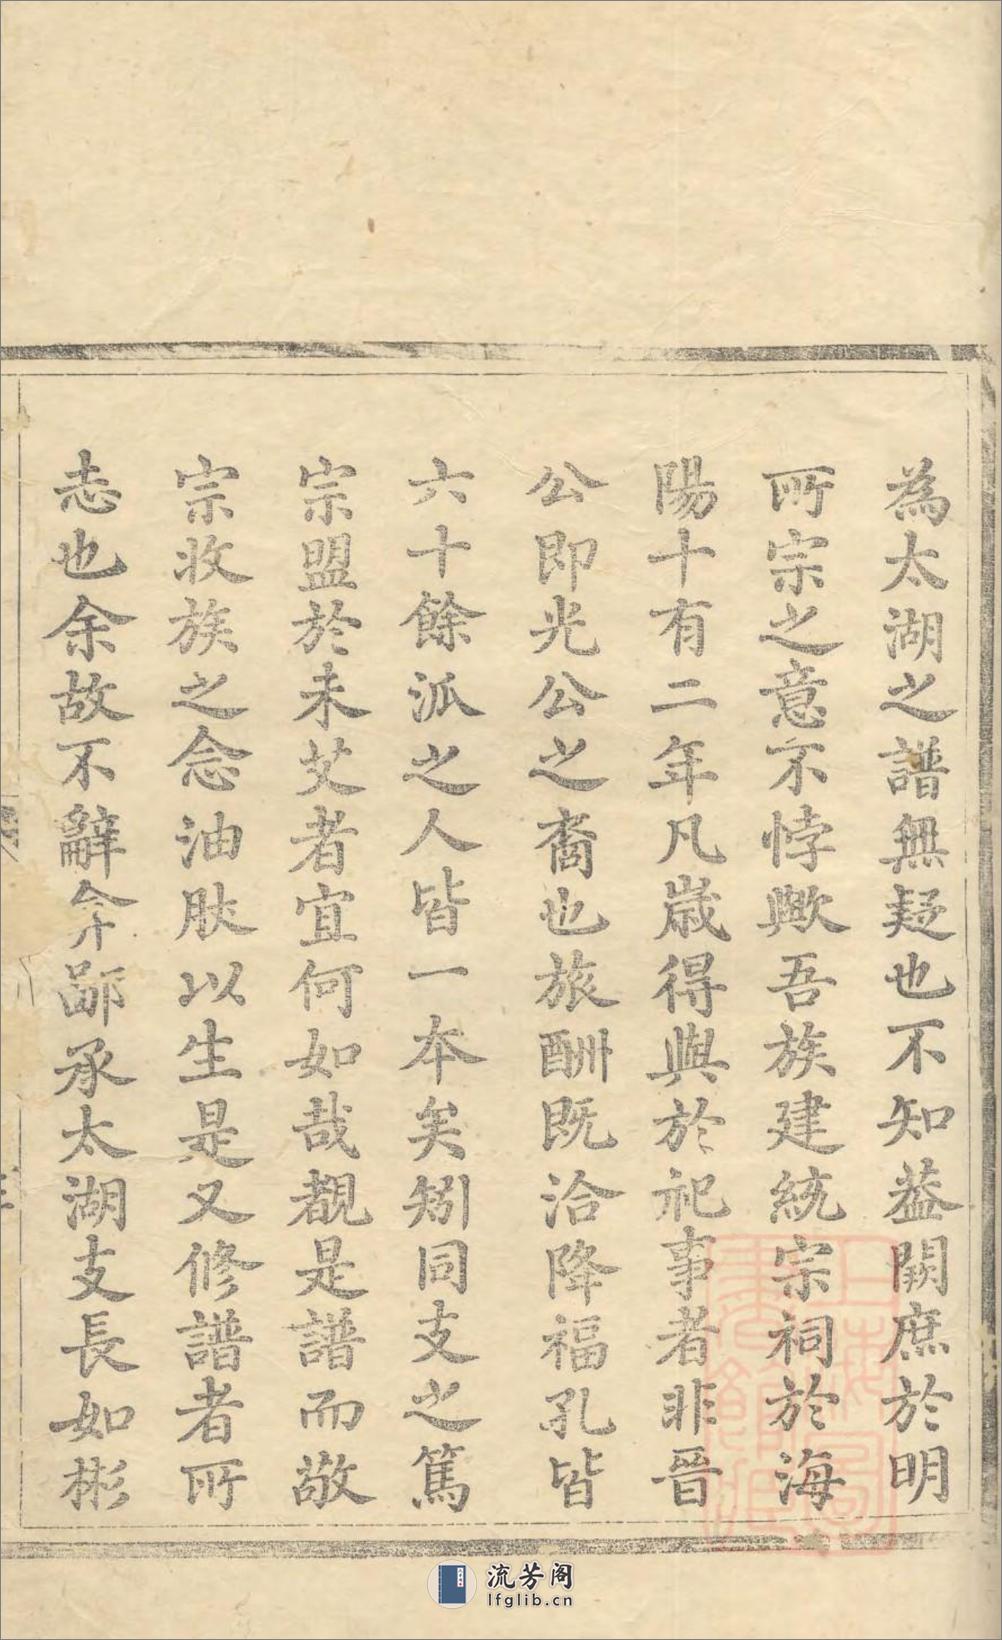 為太湖之譜無疑也不知葢闕庶於明
所宗之意不悖歟吾族建統宗祠於海
陽十有二年凡歲得與於祀事者非晉
公即光公之裔也旅酬既洽降福孔皆
六十餘派之人皆一本矣矧同支之篤
宗盟於未艾者宜何如哉覩是譜而敬
宗收族之念油肰以生是又修譜者所
志也余故不辭弁鄙承太湖支長如彬
流芳阁
lfglib.cn